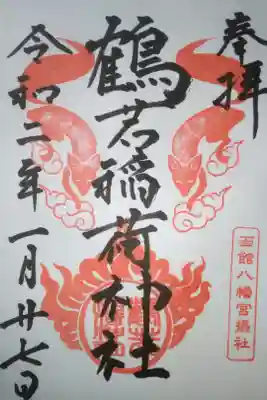 奉拝
鶴若稲荷神社
令和二年一月廿七日
函館八幡宮攝社